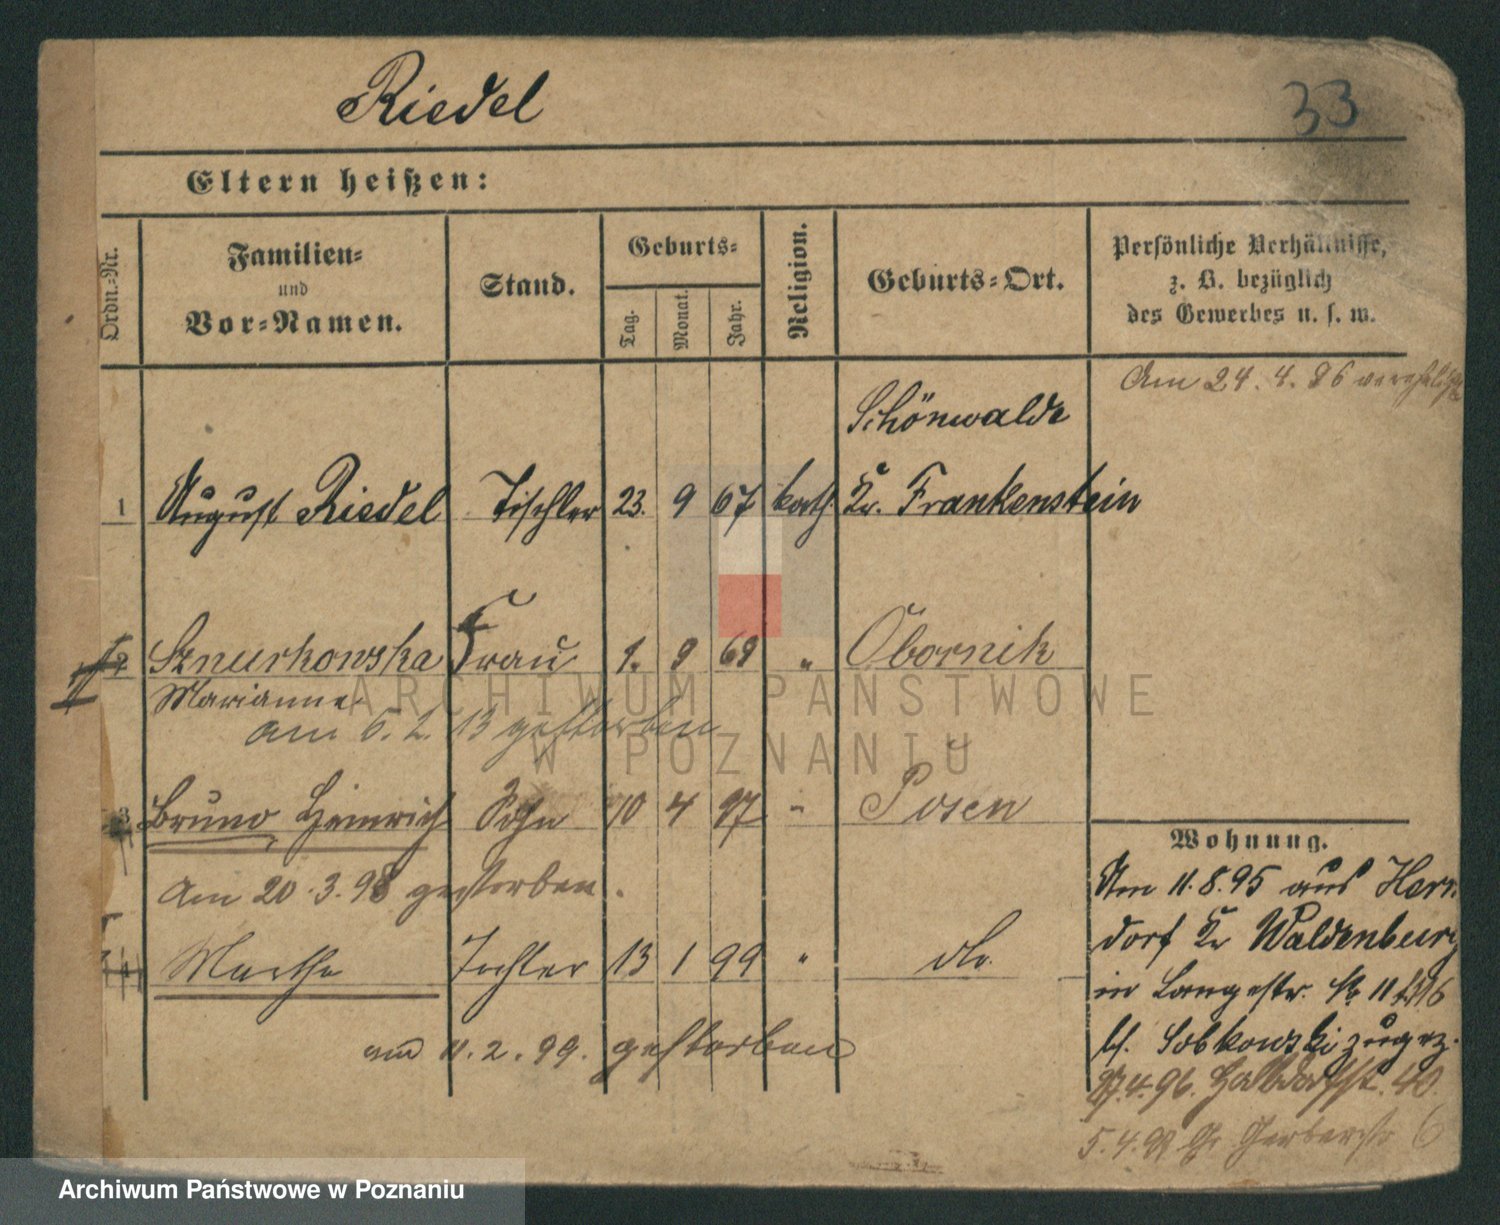 Riedel
33
Eltern heißen:
Ordn.-Nr.
Familien-
und
Vor-Namen.
Stand.
Geburts-
Tag.
Monat.
Jahr.
Religion.
Geburts-Ort.
Persönliche Verhältnisse,
z. B. bezüglich
des Gewerbes u. s. w.
Am 24. 4. 96
Schönwalde
1 August Riedel Tischler 23. 9 67 kath. Kr. Frankenstein
2 Sznurkowska Frau 1. 9 69 " Obornik
Marianne
am 6. 2. 13 gestorben
3 Bruno Heinrich Sohn 10 4 97 " Posen
Am 20. 3. 98 gestorben.
4 Martha Tochter 13 1 99 " do.
am 11. 2. 99. gestorben
Wohnung.
Am 11. 8. 95 aus Herm
dorf Kr Waldenburg
in Langestr. No 11
bl. Sobkowski zugez.
27. 4. 96. Halbdorfstr. 40.
5. 4. Gr Gerberstr 6
ARCHIWUM PAŃSTWOWE
W POZNANIU
Archiwum Państwowe w Poznaniu